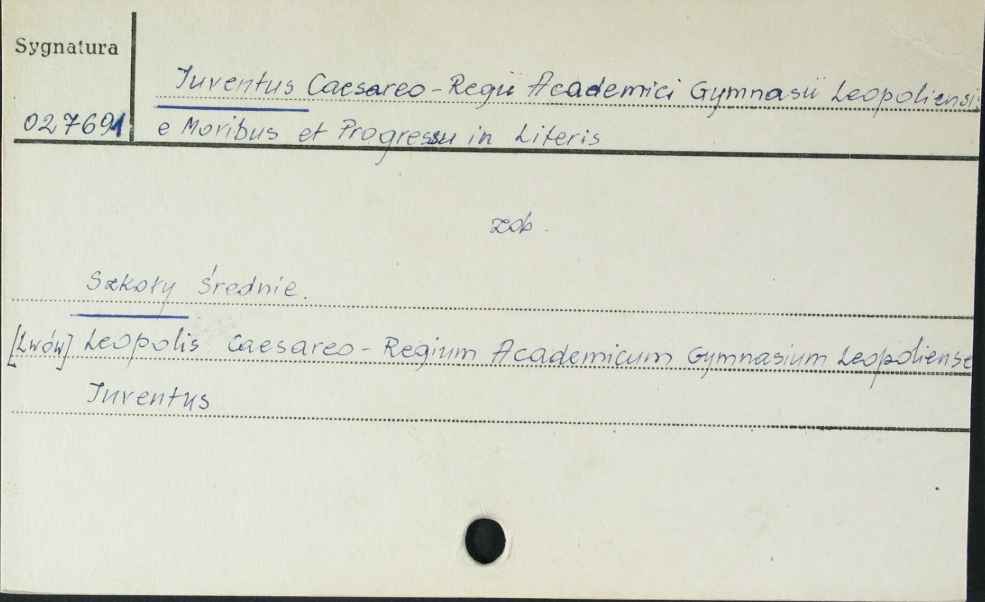 Sygnatura
Iuventus Caesareo-Regii Academici Gymnasii Leopoliensis
027691 e Moribus et Progressu in Literis
zob.
Szkoły Średnie.
[Lwów] Leopolis Caesareo-Regium Academicum Gymnasium Leopoliense
Iuventus